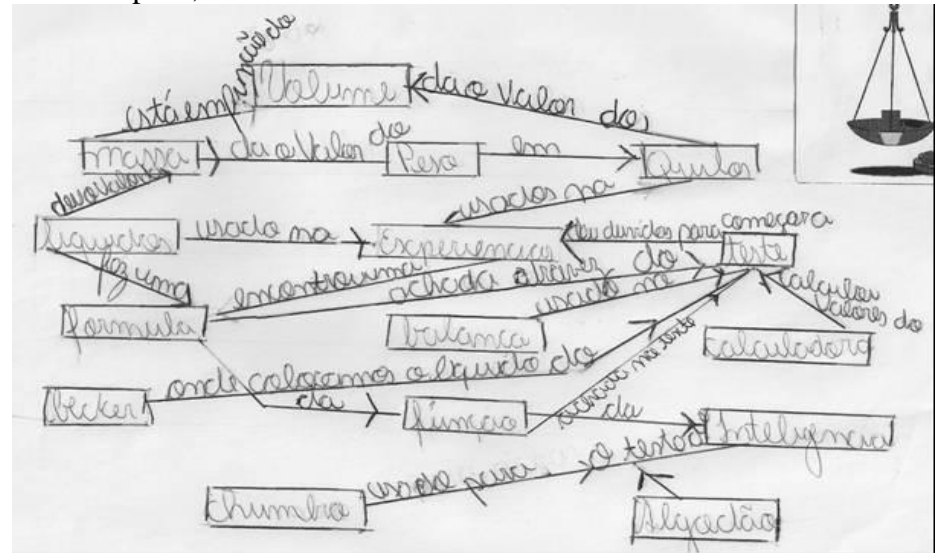 está em função do
Volume
da o valor do
massa
da o Valor do
Peso
em
Quilos
usados na
liquidos
usado na
Experiencia
deu duvidas para começar a
teste
fez uma
encontrou uma
achada atravez do
formula
balança
usado no
calcular valores do
calculadora
becker
onde colocamos o liquido do
achada no teste
da
função
da
Inteligencia
chumbo
usado para o teste
Algodão